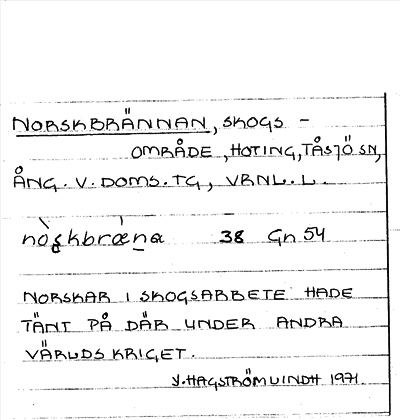 NORSKBRÄNNAN, SKOGS -
OMRÅDE, HOTING, TÅSJÖ SN,
ÅNG. V. DOMS. TG, VRNL. L.
nòʂkbræ̀na 38 Gn 54
NORSKAR I SKOGSARBETE HADE
TÄNT PÅ DÄR UNDER ANDRA
VÄRLDSKRIGET.
V. HAGSTRÖM LINDH 1971.